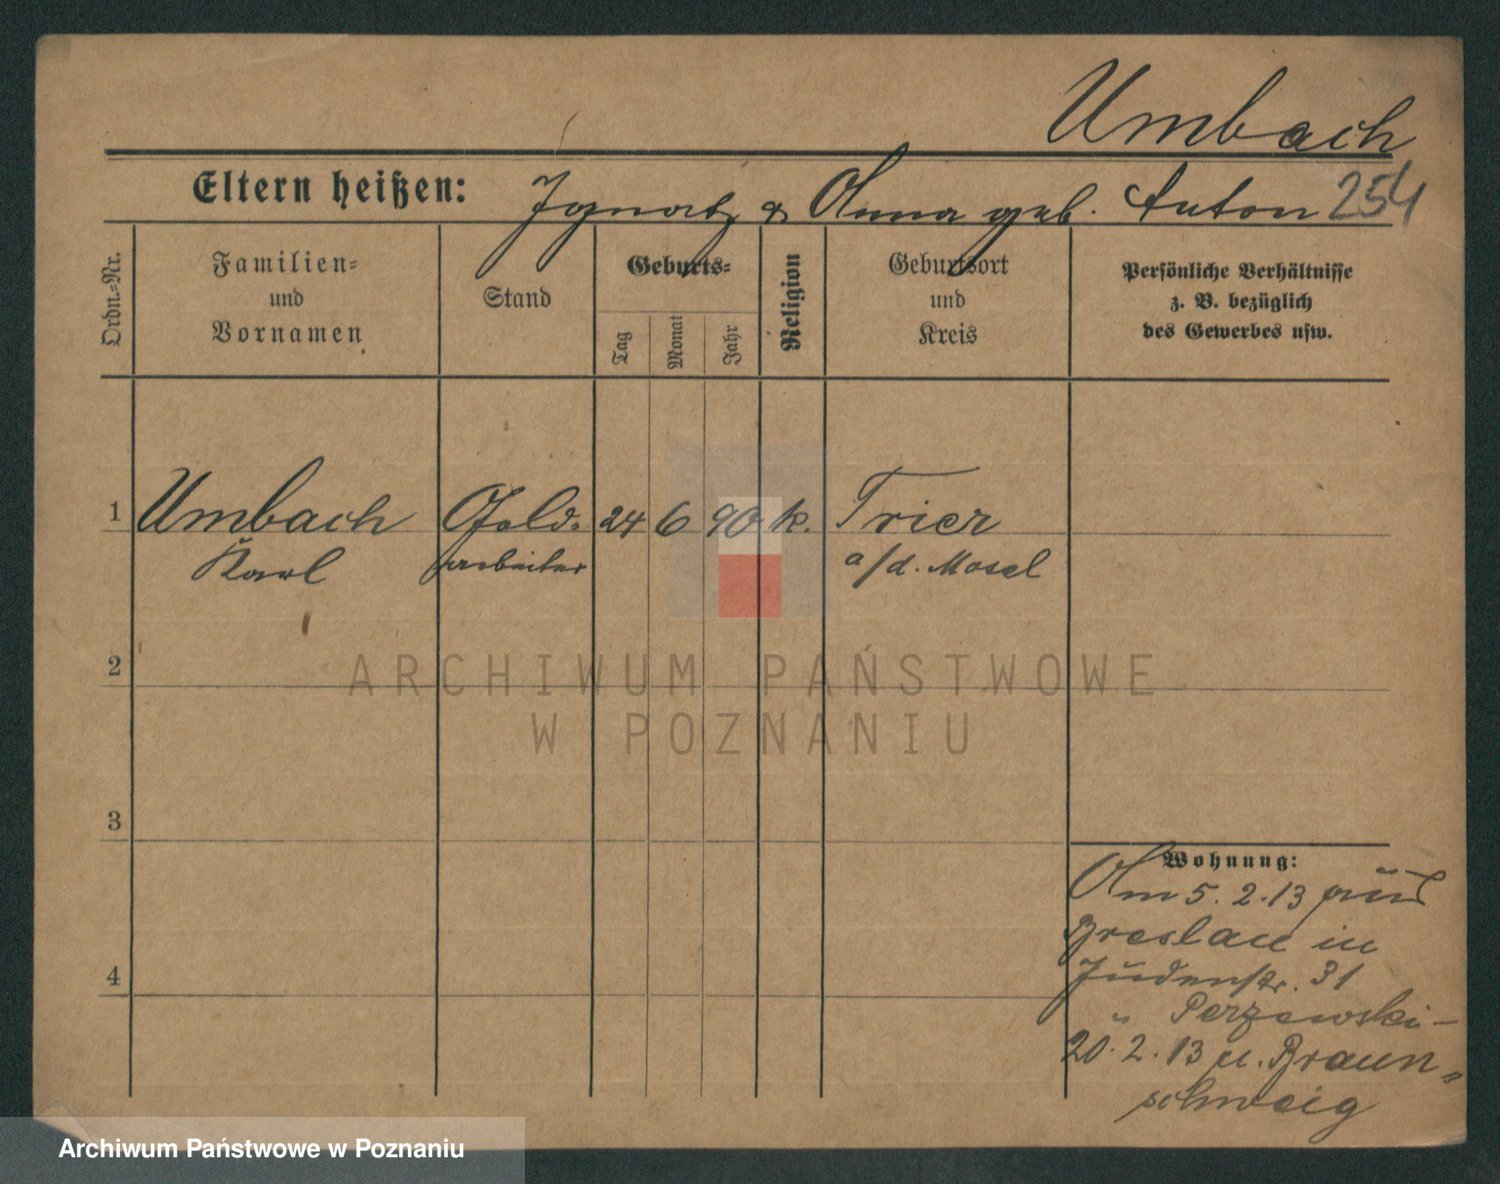 Umbach
Eltern heißen: Ignatz & Anna geb. Anton 254
Ordn.-Nr.
Familien-
und
Vornamen
Stand
Geburts-
Tag
Monat
Jahr
Religion
Geburtsort
und
Kreis
Persönliche Verhältnisse
z. B. bezüglich
des Gewerbes usw.
1 Umbach Gold- 24 6 90 k. Trier
Karl arbeiter a/d. Mosel
2
3
4
Wohnung:
Am 5.2.13 aus
Breslau in
Judenstr. 31
b Perzewski-
20.2.13 n. Braun-
schweig
ARCHIWUM PAŃSTWOWE
W POZNANIU
Archiwum Państwowe w Poznaniu